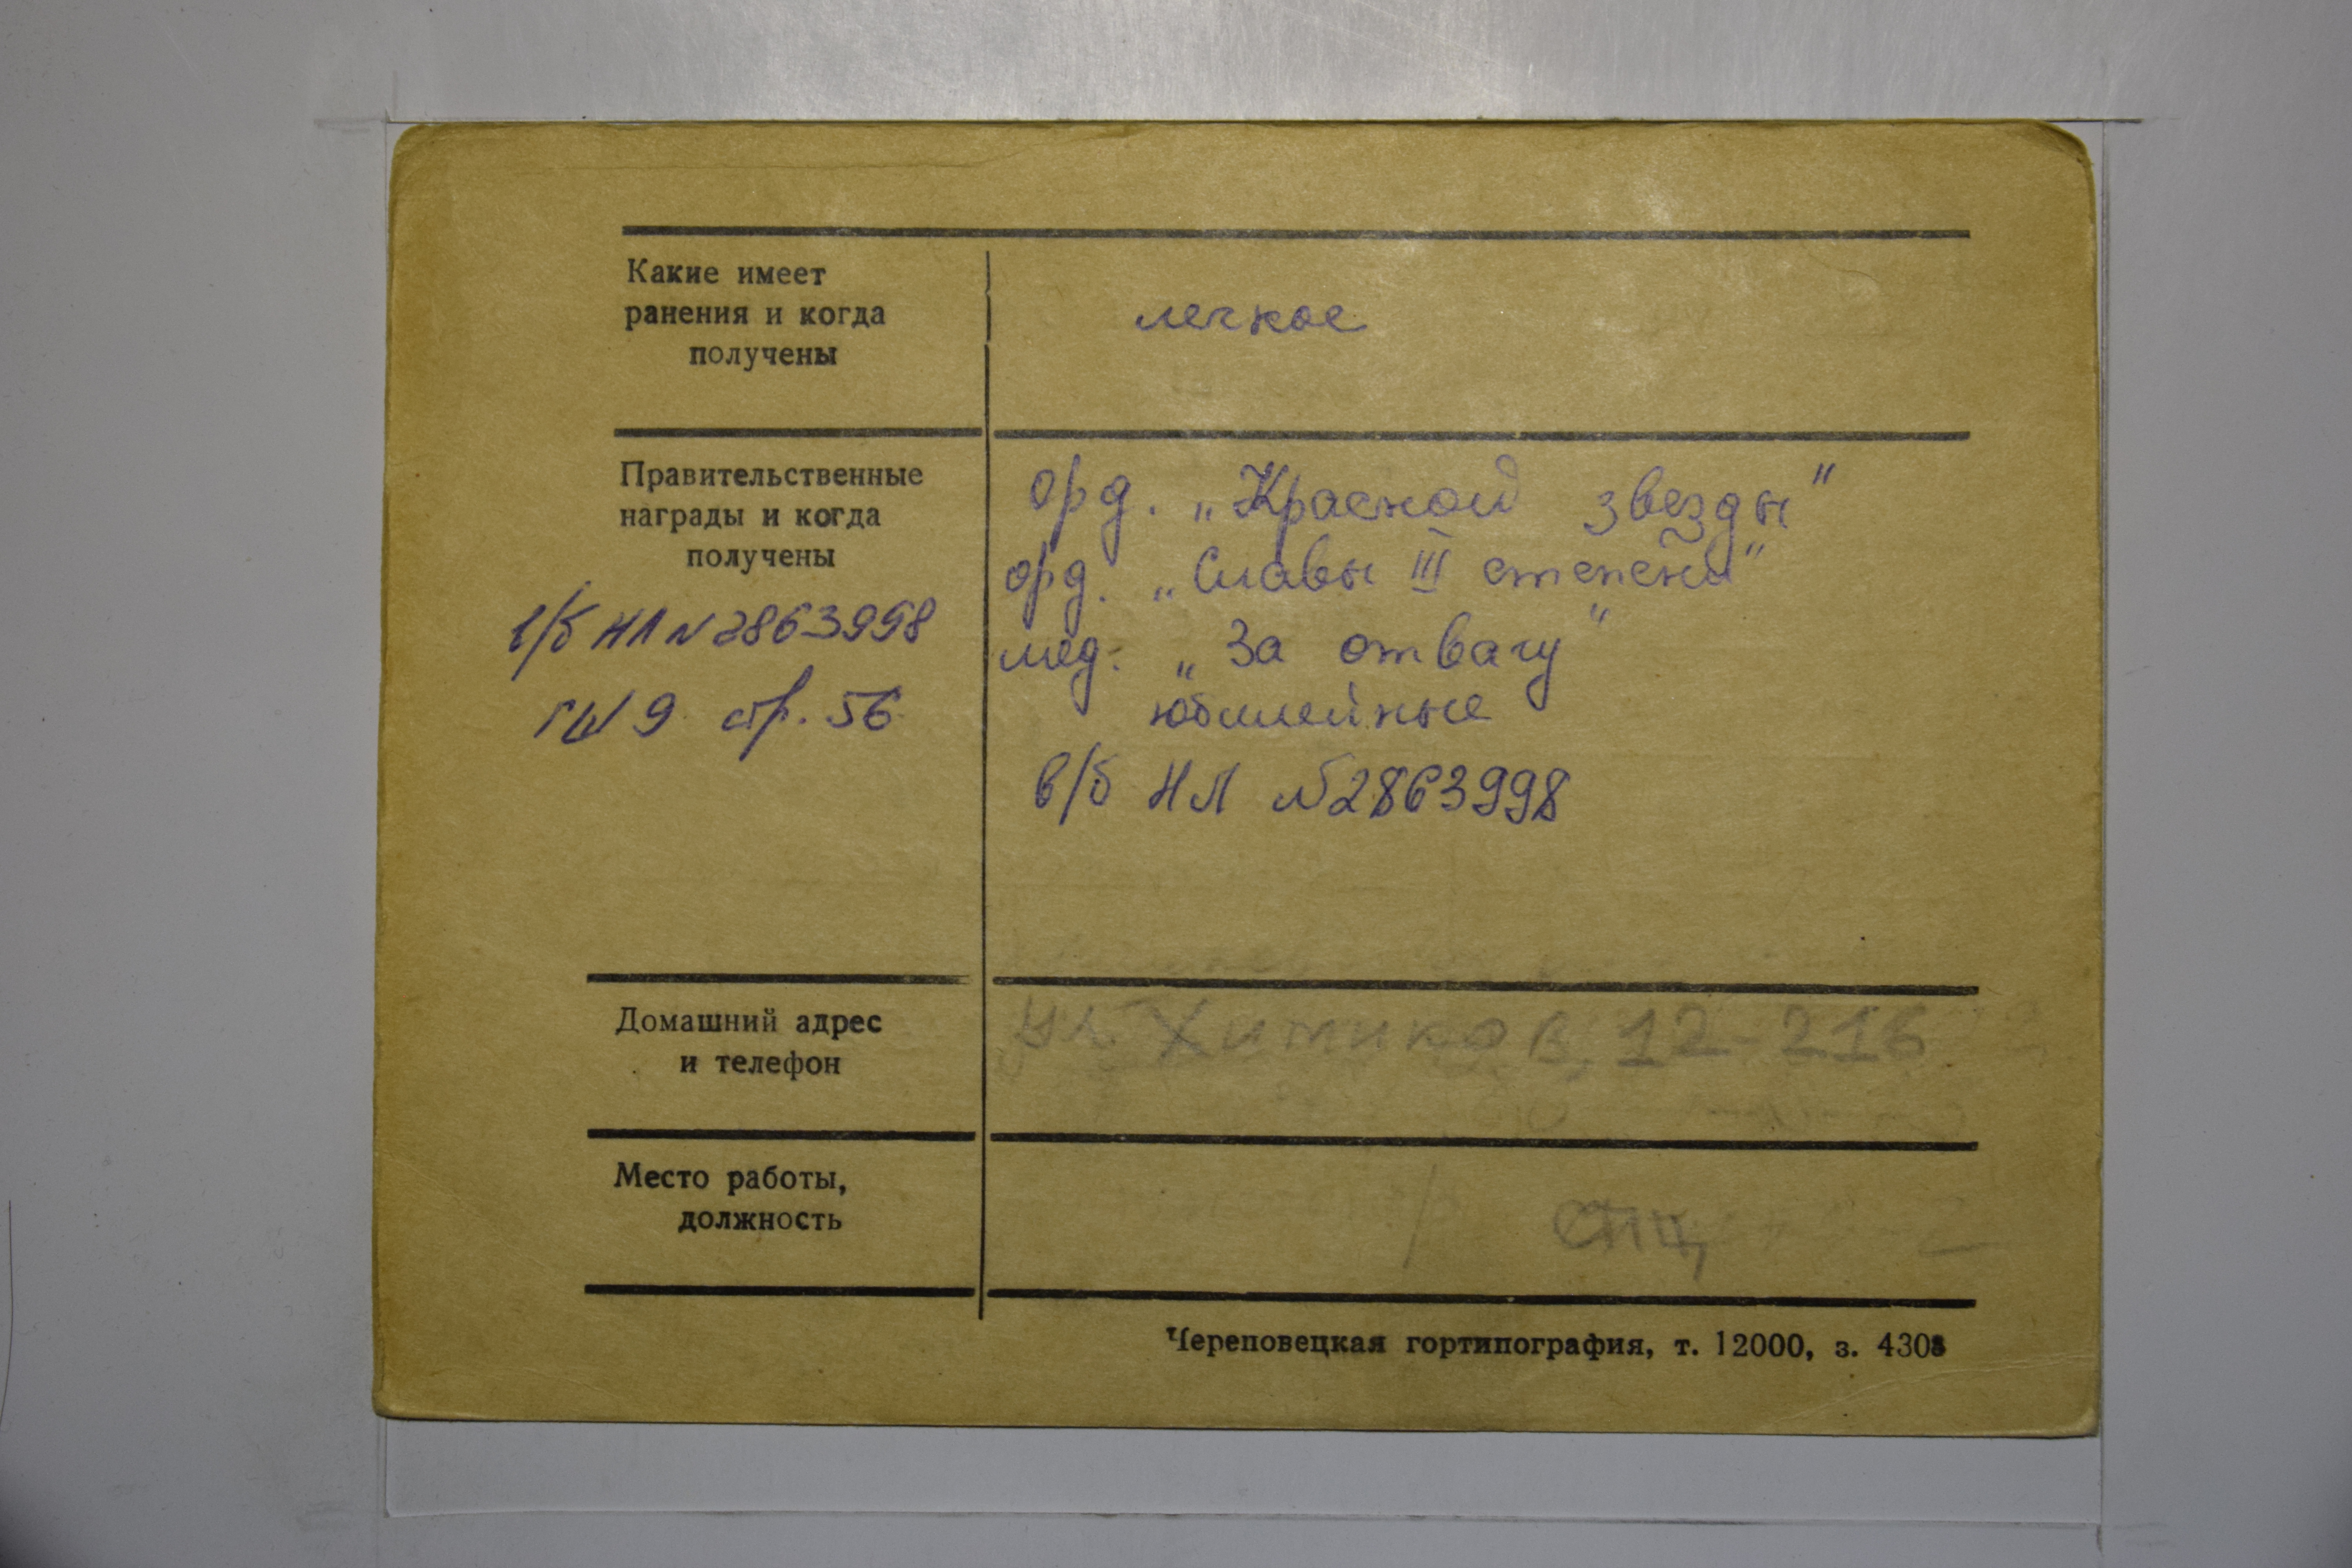 Какие имеет
ранения и когда
получены
легкое
Правительственные
награды и когда
получены
в/б НЛ N 2863998
стр. 56
орд. „Красной звезды"
орд. „Славы III степени"
мед. „За отвагу"
юбилейные
в/б НЛ №2863998
Домашний адрес
и телефон
ул. Химиков, 12-216
Место работы,
должность
Череповецкая гортипография, т. 12000, з. 4303